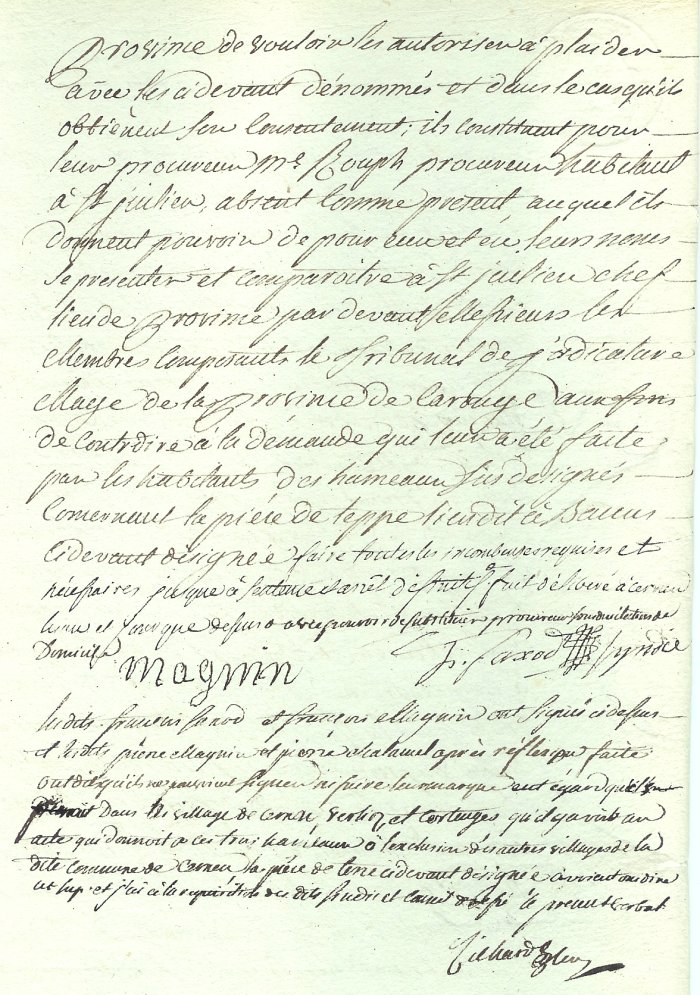 Province de vouloir les autoriser à plaider
avec les cidevant dénommés et dans le cas qu'ils
obtiènent son Consentement; ils constituent pour
leur procureur Me Rouph procureur habitant
à St julien, absent comme present auquel ils
donnent pouvoir de pour eux et en leurs noms
se presenter et comparoitre à St julien chef
lieu de Province par devant Messieurs les
Membres Composants le Tribunal de judicature
Mage de la Province de Carouge aux fins
de Contrdire à la démande qui leur a été faite
par les habitants des hameaux sus désignés
Concernant la pièce de teppe lieudit à
cidevant désignée faire toutes les incombenses requises et
nécessaires jusque à sentence et arrêt fait délibéré à cernex
lieu et jour que dessus avec pouvoir de substituer procureur election de
Domicile
magnin J. Saxod syndic
lesdits françois Saxod et françois Magnin ont signés cidessus
et lesdits pierre Magnin et pierre Chatamel après réflexion faite
ont dit qu'ils ne pouvoient signer ni faire leur marque eut égard qu'il
Dans les village de cernex verlioz et Cortanges qu'il y avoit un
acte qui donnoit à ces trois hameaux à l'exclusion des autres villages de la
dite commune de Cernex la pièce de terre cidevant désignée à
et j'ai à la requisition des dits sindic et Conseil le present verbal